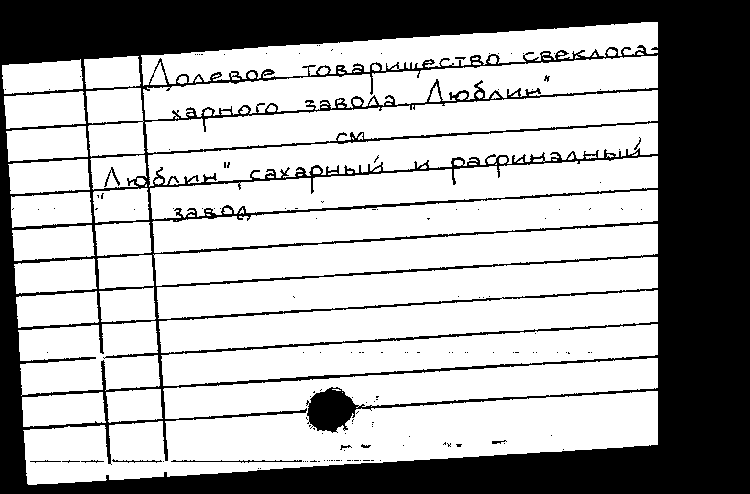 Долевое товарищество свеклоса-
харного завода „Люблин"
см
„Люблин", сахарный и рафинадный
завод